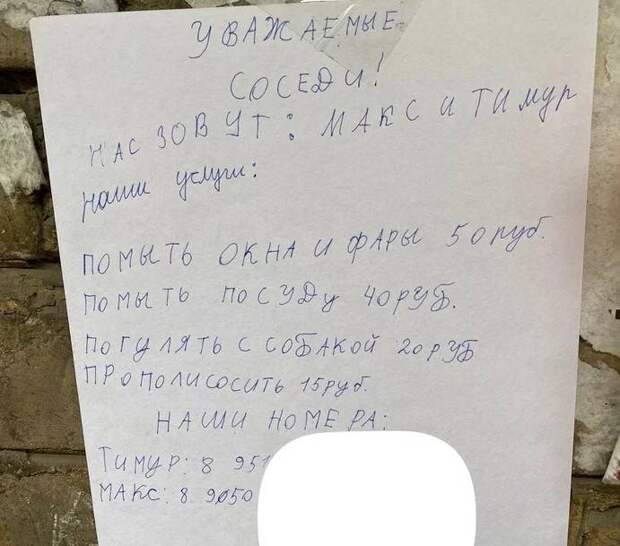 УВАЖАЕМЫЕ
СОСЕДИ!
НАС ЗОВУТ: МАКС И ТИМУР
наши услуги:
ПОМЫТЬ ОКНА И ФАРЫ 50 руб.
ПОМЫТЬ ПОСУДУ 40 РУБ.
ПОГУЛЯТЬ С СОБАКОЙ 20 РУБ
ПРОПОЛИСОСИТЬ 15 руб.
НАШИ НОМЕРА:
ТИМУР: 8 951
МАКС: 8 9050